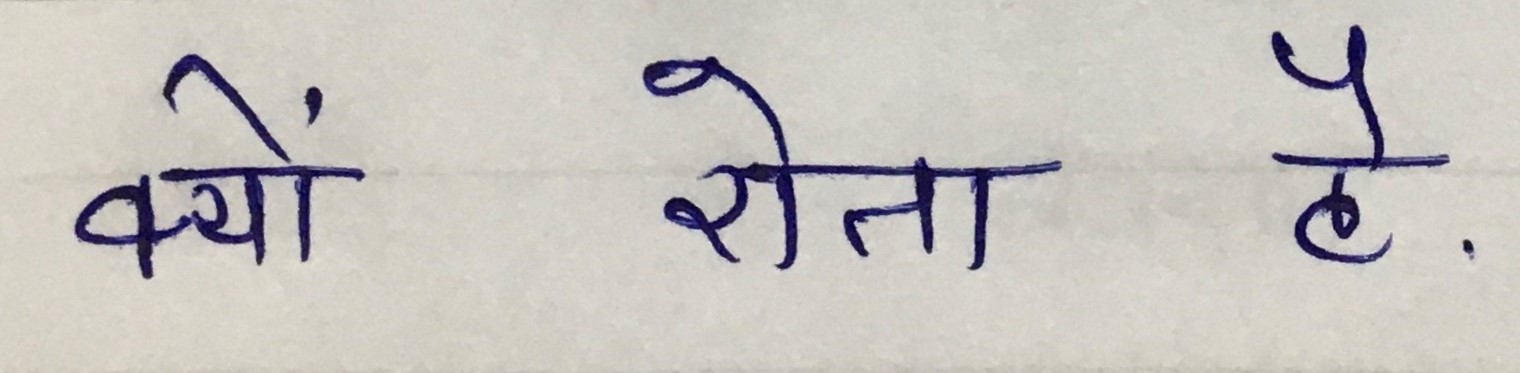 क्यों रोता है.